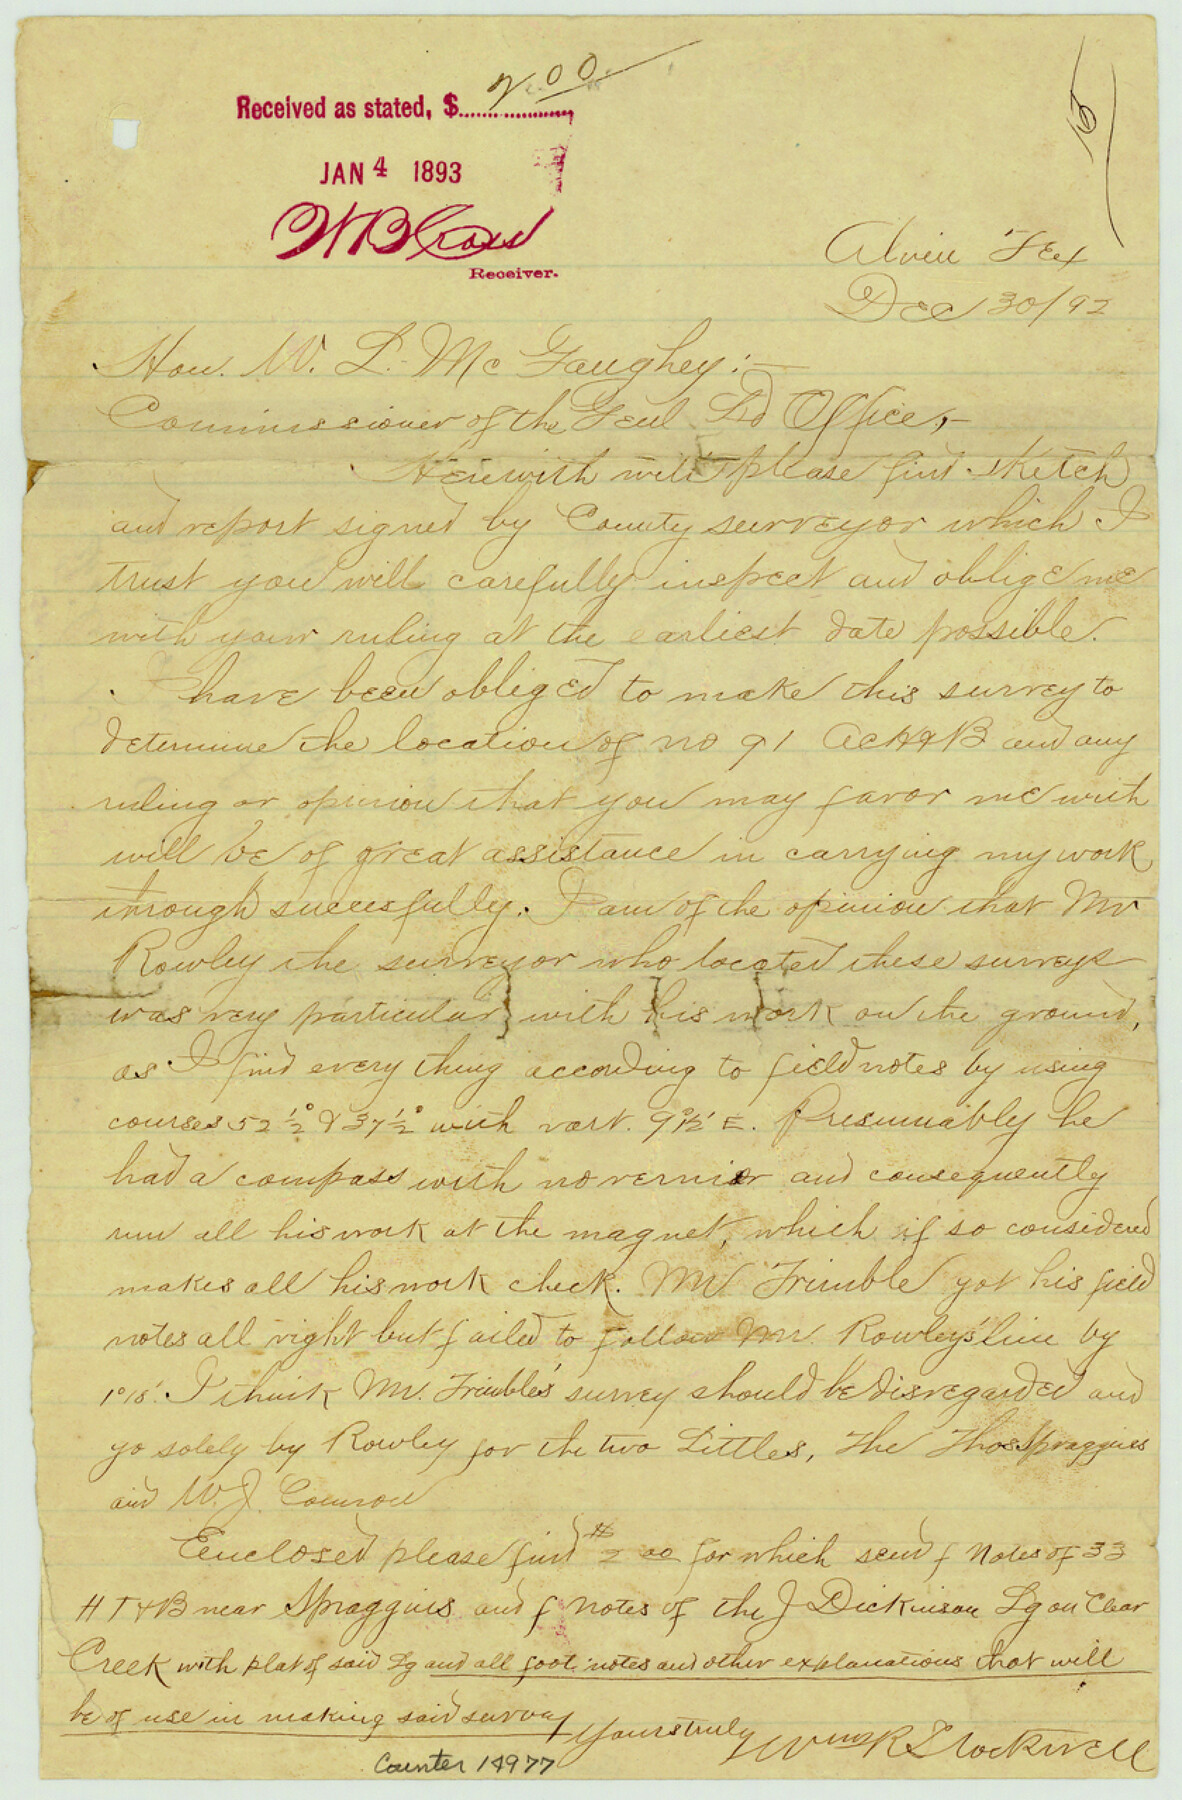 Received as stated, $ 2.00
JAN 4 1893
Receiver.
13
Alvin Tex
Dec 30/92
Hon. W. L. McGaughey:—
Commissioner of the Genl Ld Office,—
Herewith will please find sketch
and report signed by County surveyor which I
trust you will carefully inspect and oblige me
with your ruling at the earliest date possible.
I have been obliged to make this survey to
determine the location of no 91 ACH&B and any
ruling or opinion that you may favor me with
will be of great assistance in carrying my work
through succesfully. I am of the opinion that Mr
Rowley the surveyor who located these surveys
was very particular with his work on the ground,
as I find every thing according to field notes by using
courses 52½° & 37½° with vart. 9°12' E. Presumably he
had a compass with no vernier and consequently
run all his work at the magnet, which if so considered
makes all his work check. Mr Trimble got his field
notes all right but failed to follow Mr. Rowley's line by
1°18'. I think Mr. Trimble's survey should be disregarded and
go solely by Rowley for the two Littles, the Thos Spraggins
and W. J.
Enclosed please find $2 00 for which send f Notes of 33
H T & B near Spraggins and f notes of the J Dickinson Lg on Clear
Creek with plat of said Lg and all foot notes and other explanations that will
be of use in making said survey
Yours truly Wm R Stockwell
Counter 14977